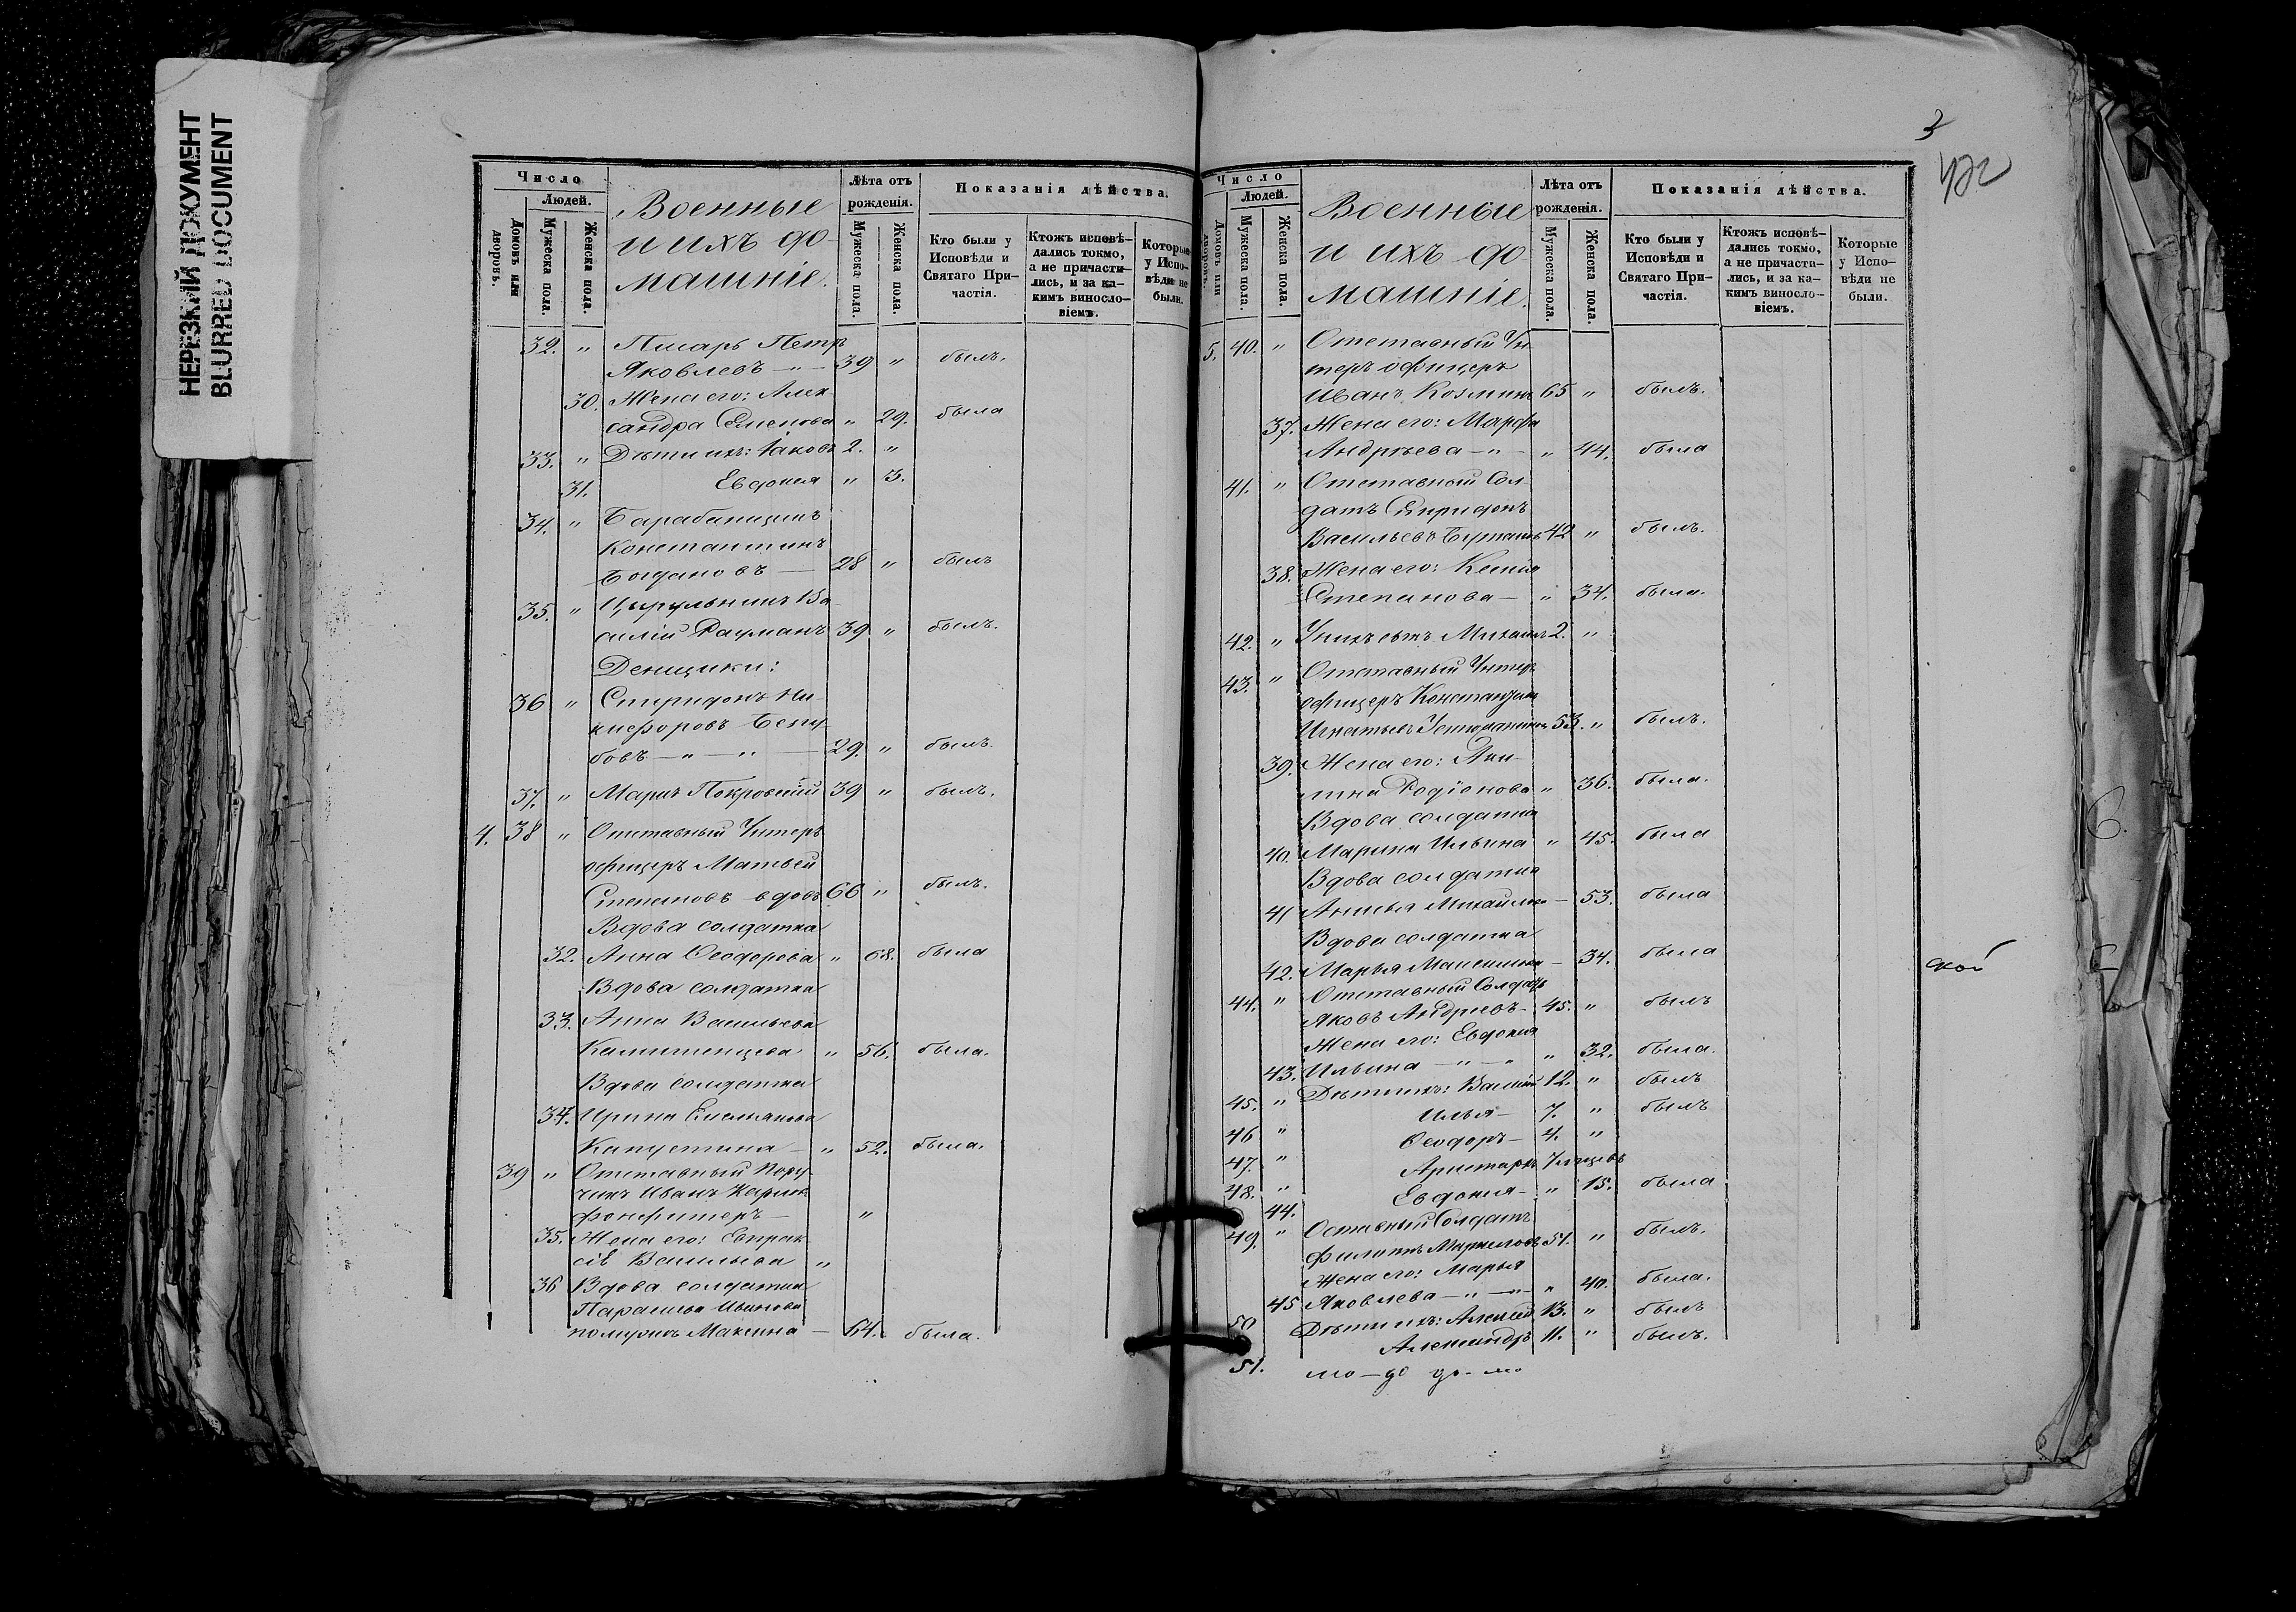 НЕРЕЗКИЙ ДОКУМЕНТ
BLURRED DOCUMENT
Число
Людей.
Домовъ или дворовъ.
Мужеска пола.
Женска пола.
Военные
и ихъ до-
машніе.
Лѣта отъ рожденія.
Мужеска пола.
Женска пола.
Показанія дѣйства.
Кто были у Исповѣди и Святаго При-частія.
Ктожъ исповѣ-дались токмо, а не причасти-лись, и за ка-кимъ винословіемъ.
Которые у Испо-вѣди не были.
32. " Писарь Петръ
Яковлевъ — " — 39 " былъ.
30. Жена его: Алек-
сандра Семенова " 29. была
33. " Дѣти ихъ: Іаковъ 2. "
31. Евдокія " 3.
34. " Барабанщикъ
Константинъ
Богдановъ — 28 " былъ
35. " Цырульникъ Ва-
силій Рауманъ 39 " былъ.
Денщики:
36 " Спиридонъ Ни-
кифоровъ
бовъ — " — " — 29. " былъ.
37. " Покровскій 39 " былъ.
4. 38 " Отставный Унтеръ
офицеръ Матвей
Степановъ вдовъ 66 " былъ.
Вдова солдатка
32. Анна Ѳеодорова " 68. была
Вдова солдатка
33. Анна Васильева
" 56. была.
Вдова солдатка
34. Ирина Емельянова
Капустина — " 52. была.
39 " Отставный Пору-
чикъ Иванъ
"
35. Жена его: Евпрак-
сія Васильева "
36 Вдова солдатка
Параскева Иванова
64. была.
3
Число
Людей.
Домовъ или дворовъ.
Мужеска пола.
Женска пола.
Военные
и ихъ до-
машніе.
Лѣта отъ рожденія.
Мужеска пола.
Женска пола.
Показанія дѣйства.
Кто были у Исповѣди и Святаго При-частія.
Ктожъ исповѣ-дались токмо, а не причасти-лись, и за ка-кимъ винословіемъ.
Которые у Испо-вѣди не были.
5. 40. " Отставный Ун-
теръ офицеръ
Иванъ Козминъ 65 " былъ.
37. Жена его: Марфа
Андрѣева — " — " 44. была
41. " Отставный Сол-
датъ Спиридонъ
Васильевъ 42 " былъ.
38. Жена его: Ксенія
Степанова — " 34. была.
42. " У нихъ сынъ Михаилъ 2. "
43. " Отставный Унтеръ
офицеръ Константинъ
Игнатьевъ 53. " былъ.
39. Жена его: Аки-
лина Родіонова " 36. была.
Вдова солдатка
40. Марина Ильина " 45. была
Вдова солдатка
41 Анисья Михайлова — 53. была
Вдова солдатка
42. Марья — 34. была
44. " Отставный Солдатъ
Яковъ Андреевъ — 45. " былъ
Жена его: Евдокія
43. Ильина — " — " " 32. была.
45. " Дѣти ихъ: Василій 12. " былъ
46 " Илья — 7. " былъ
47. " Ѳеодоръ — 4. "
48. " Аристархъ 7 мѣсяцевъ
44. Евдокія — " 15. была
49. " Оставный Солдатъ
Филиппъ 51. " былъ.
Жена его: Марья
45 Яковлева — " — " — " 40. была.
50 Дѣти ихъ: Алексѣй 13. " былъ
51. Александръ 11. " былъ.
ской